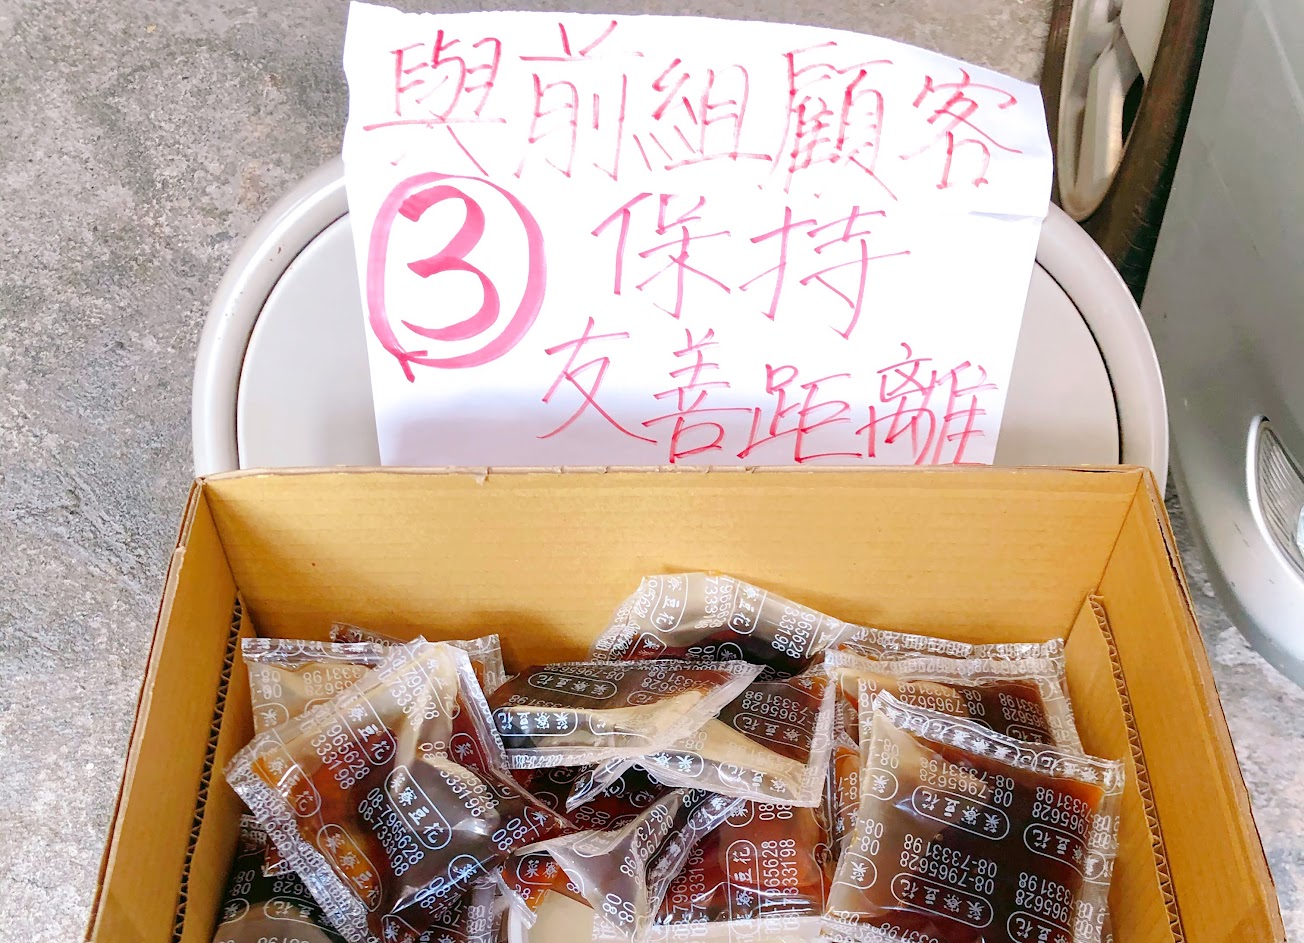 與前組顧客
③保持
友善距離
菜寮豆花
08-7965628
08-7333198